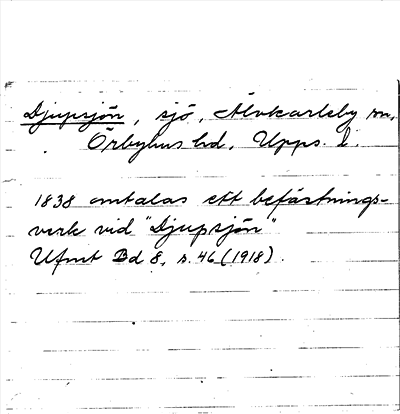 Djupsjön, sjö, Älvkarleby sn,
Örbyhus hd, Upps. l.
1838 omtalas ett befästnings-
verk vid "Djupsjön"
Ufmt Bd 8, s. 46 (1918).